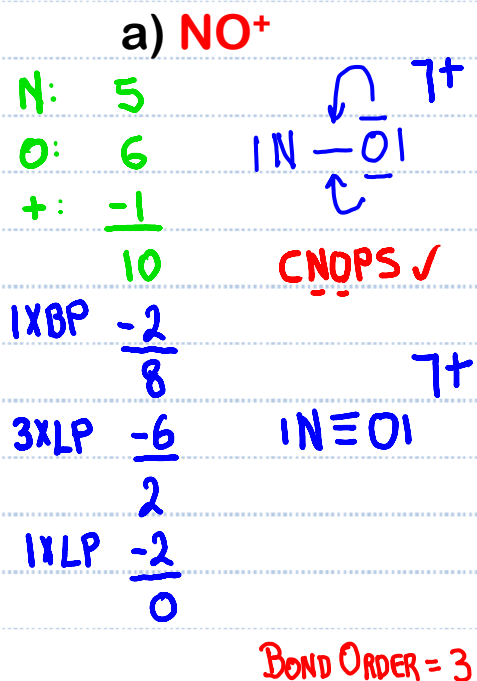 a) NO⁺
N: 5
O: 6
+: -1
10
1XBP -2
8
3XLP -6
2
1XLP -2
0
7+
|N—O|
CNOPS ✓
7+
|N≡O|
BOND ORDER = 3